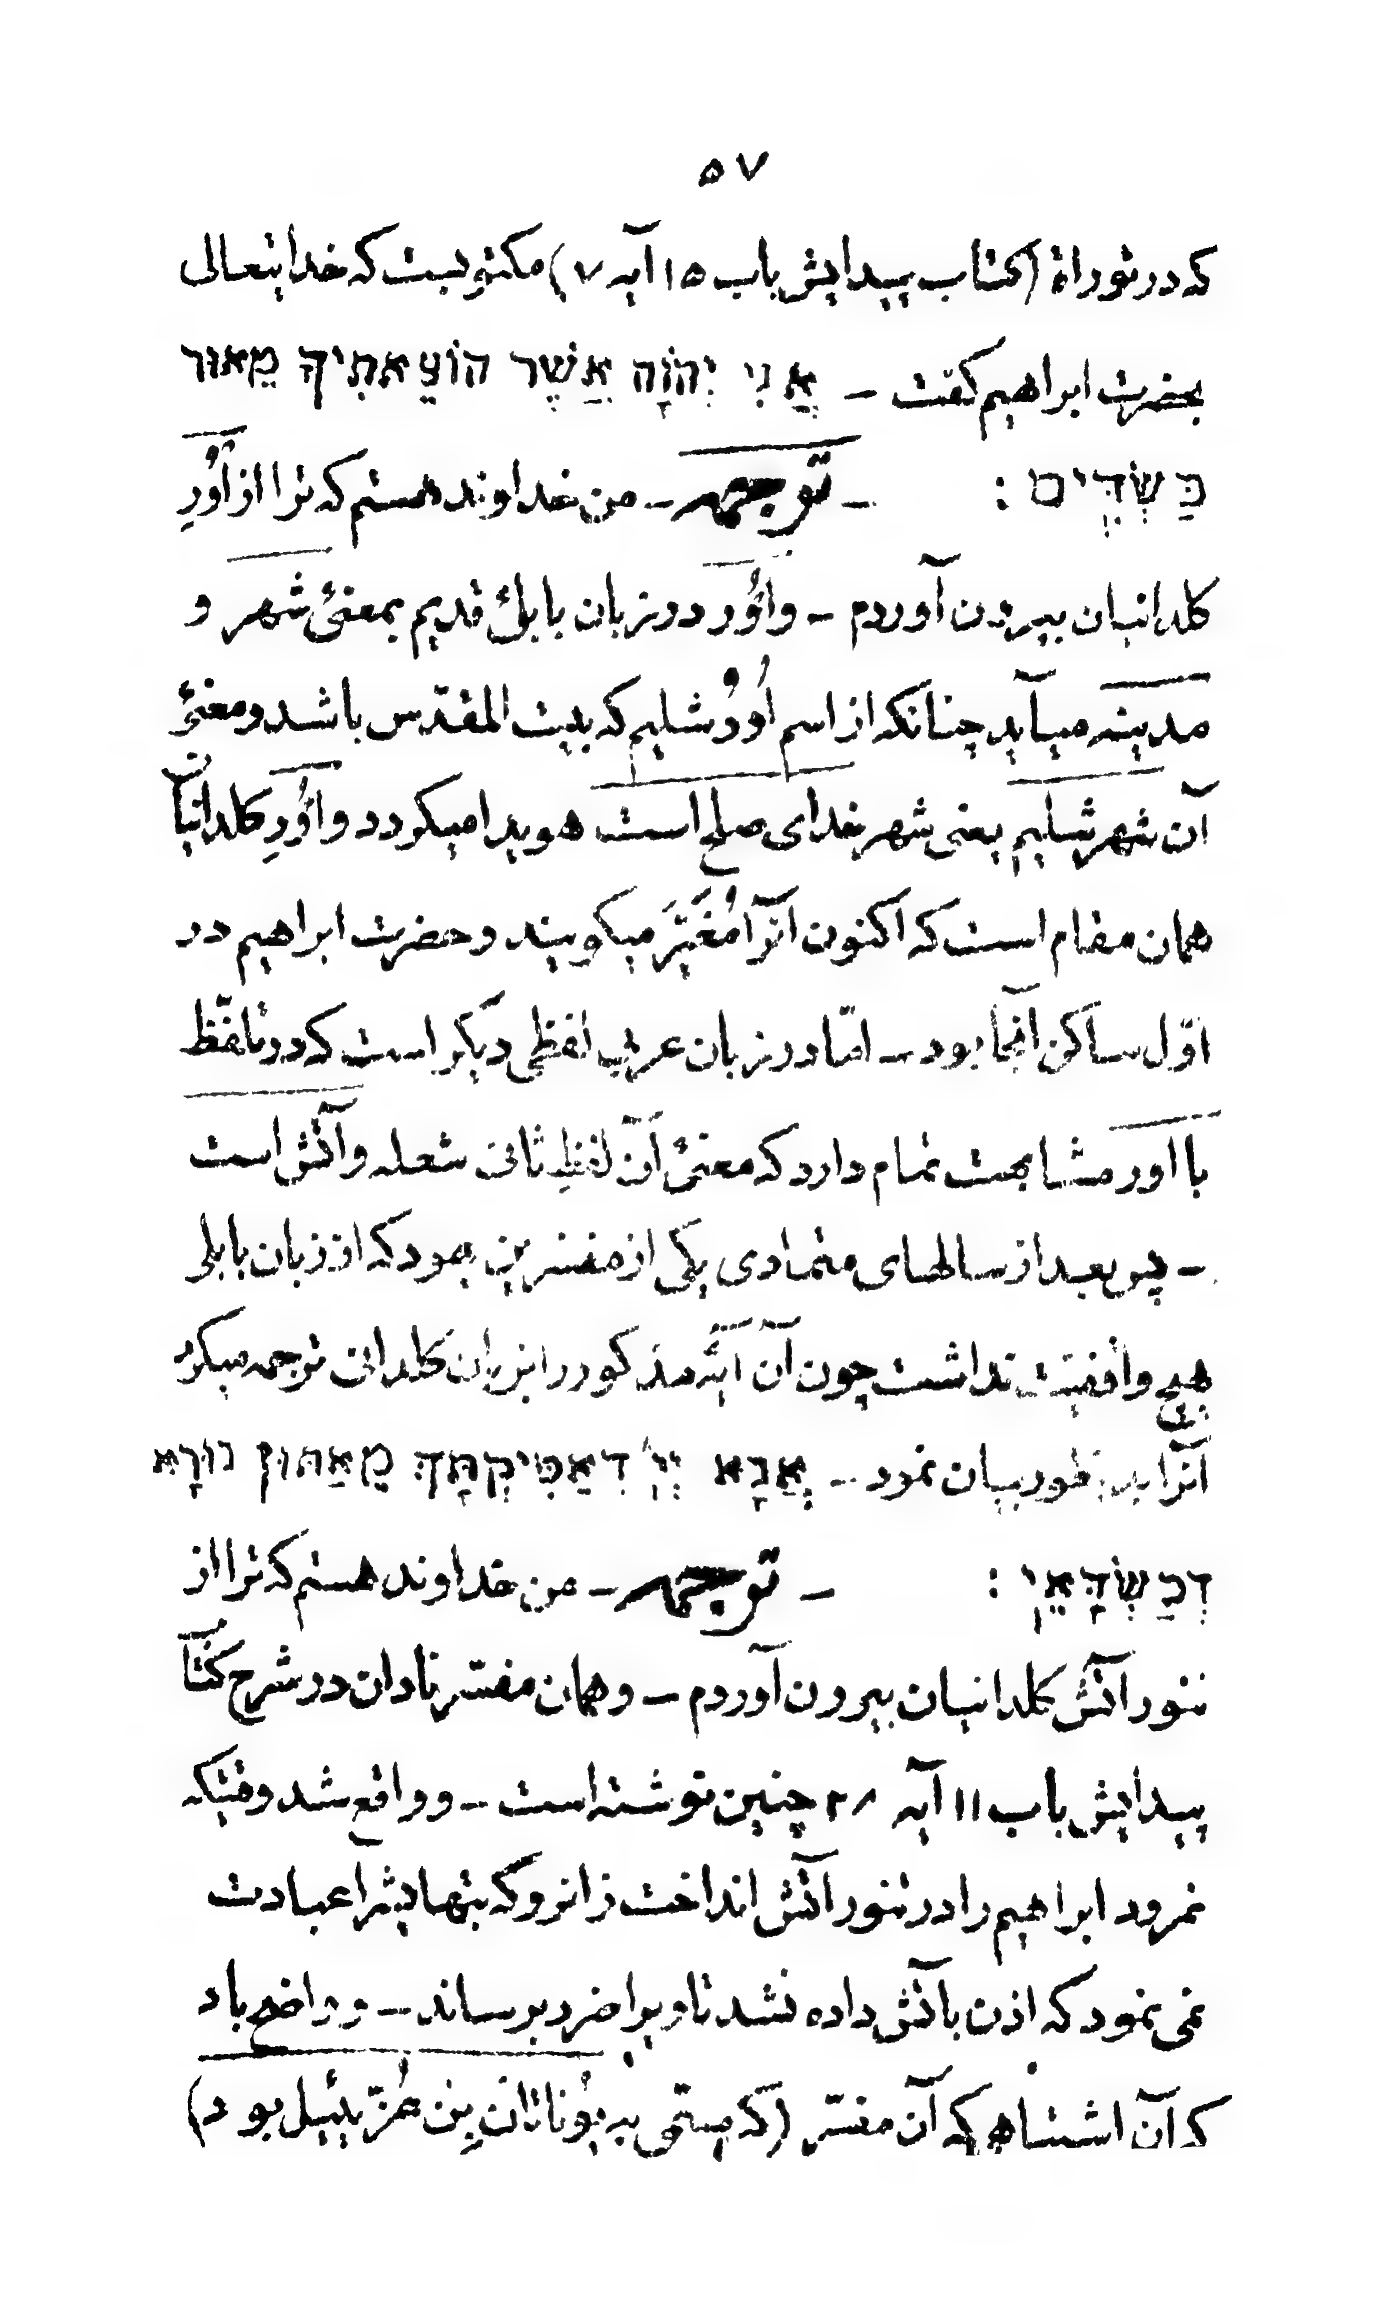 ۵۷
که در توراة (کتاب پیدایش باب ۱۵ آیه ۷) مکتوبست که خدایتعالی
بحضرت ابراهیم گفت – אֲנִי יְהוָֹה אֲשֶׁר הוֹצֵאתִיךָ מֵאוּר
כַּשְׂדִּים : – ترجمه – من خداوند هستم که ترا از اُوْرِ
کلدانیان بیرون آوردم – و اُوْر در زبان بابلئ قدیم بمعنئ شهر و
مدینه میآید چنانکه از اسم اُورُشلیم که بیت المقدّس باشد و معنئ
آن شهر شلیم یعنی شهر خدای صلح است هویدا میگردد و اُوْرِ کلدانیان
همان مقام است که اکنون آنرا مُغَیَّر میگویند و حضرت ابراهیم در
اوّل ساکن آنجا بود – امّا در زبان عربی لفظی دیگر است که در تلفّظ
با اور مشابهت تمام دارد که معنئ آن لفظ ثانی شعله و آتش است
– پس بعد از سالهای متمادی یکی از مفسّرین یهود که از زبان بابلی
هیچ واقفیّت نداشت چون آن آیهٔ مذکور را بزبان کلدانی ترجمه میکرد
آنرا بدینطور بیان نمود – אֲנָא יְיָ דִאַפֵּיקְתָּךְ מֵאַתּוּן נוּרָא
דְכַשְׂדָּאֵי : – ترجمه – من خداوند هستم که ترا از
تنور آتش کلدانیان بیرون آوردم – و همان مفسّر نادان در شرح کتاب
پیدایش باب ۱۱ آیه ۲۸ چنین نوشته است – و واقع شد وقتیکه
نمرود ابراهیم را در تنور آتش انداخت زانرو که بتهایشرا عبادت
نمی نمود که اذن بآتش داده نشد تا ویرا ضرر برساند – و واضح باد
که آن اشتباه که آن مفسّر (که مسمّی به یُوناثان بِن عُزّیئیل بود)